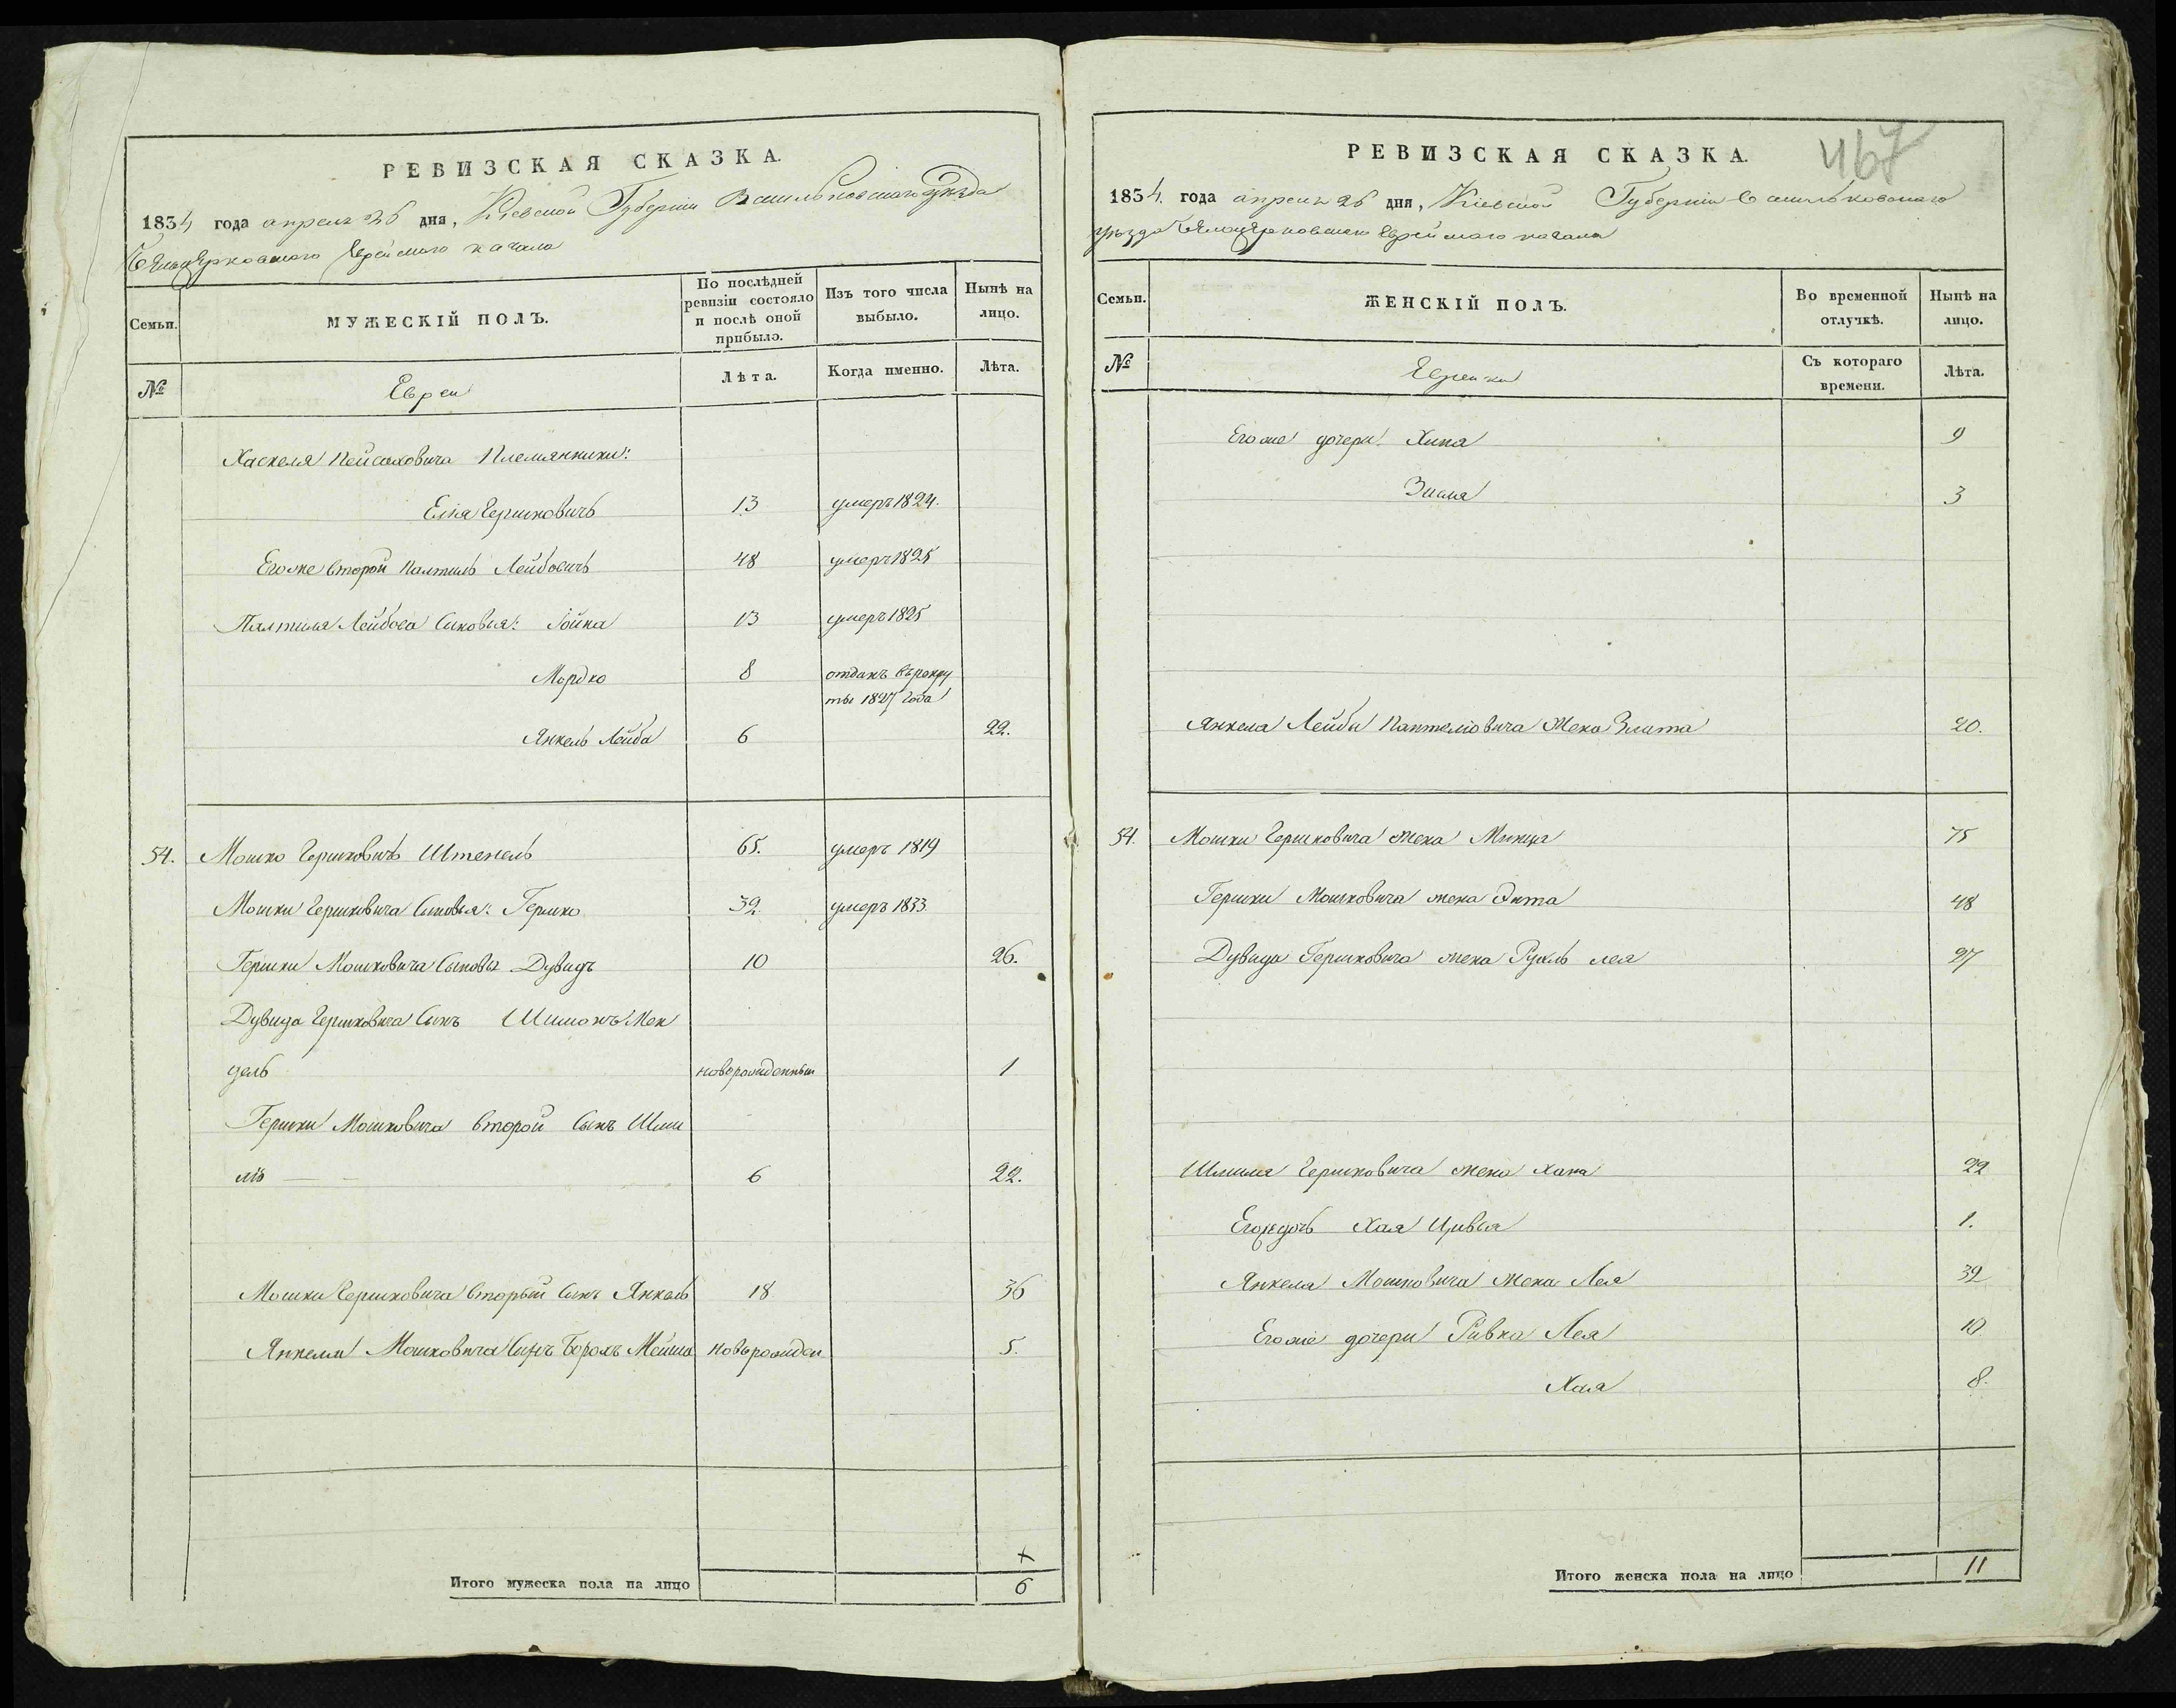 РЕВИЗСКАЯ СКАЗКА.
1834 года апреля 26 дня, Кіевской Губерніи Васильковскаго уѣзда
Бѣлоцерковского Еврейскаго кагала
Семьи.
МУЖЕСКІЙ ПОЛЪ.
По послѣдней ревизіи состояло и послѣ оной прибыло.
Изъ того числа выбыло.
Нынѣ на лицо.
№
Евреи
Лѣта.
Когда именно.
Лѣта.
Хаскеля Пейсаховича Племянники:
Елія Гершковичъ 13 умеръ 1824.
Егоже второй Палтиль Лейбовичъ 48 умеръ 1825
Палтиля Лейбова Сыновья: Іойна 13 умеръ 1825
Мордко 8 отданъ въ рекру
ты 1827 года
Янкель Лейба 6 22.
54. Мошко Гершковичъ Штепель 65. умеръ 1819
Мошки Гершковича Сыновья: Гершко 32. умеръ 1833
Гершки Мошковича Сыновья Дувидъ 10 26.
Дувида Гершковича Сынъ Шимонъ Мен
дель новорожденный 1
Гершки Мошковича второй Сынъ Шми
ль 6 22.
Мошки Гершковича вторый сынъ Янкель 18 36
Янкеля Мошковича Сынъ Борохъ Мойша новорожден 5.
Итого мужеска пола на лицо 6
РЕВИЗСКАЯ СКАЗКА.
467
1834. года апреля 26 дня, Кіевской Губерніи Васильковскаго
уѣзда Бѣлоцерковского Еврейскаго кагала
Семьи.
ЖЕНСКІЙ ПОЛЪ.
Во временной отлучкѣ.
Нынѣ на лицо.
№
Еврейки
Съ котораго времени.
Лѣта.
Егоже дочери Хина 9
Зисля 3
Янкеля Лейбы Палтеліовича Жена Злата 20.
54. Мошки Гершковича жена Минца 75
Гершки Мошковича жена Энта 48
Дувида Гершковича жена Рухль лея 27
Шмиля Гершковича жена Хана 22
Егожедочь Хая Цивья 1.
Янкеля Мошковича жена Лея 32
Егоже дочери Ривка Лея 10
Хая 8.
Итого женска пола на лицо 11